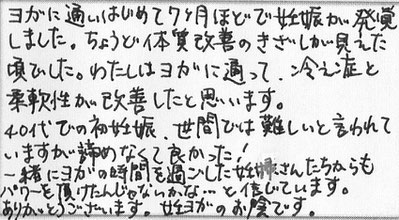 ヨガに通いはじめて7ヶ月ほどで妊娠が発覚
しました。ちょうど体質改善のきざしが見えた
頃でした。わたしはヨガに通って、冷え症と
柔軟性が改善したと思います。
40代での初妊娠、世間では難しいと言われて
いますが諦めなくて良かった!
一緒にヨガの時間を過ごした妊婦さんたちからも
パワーを頂けたんじゃないかな…と信じています。
ありがとうございます。妊ヨガのお陰です。